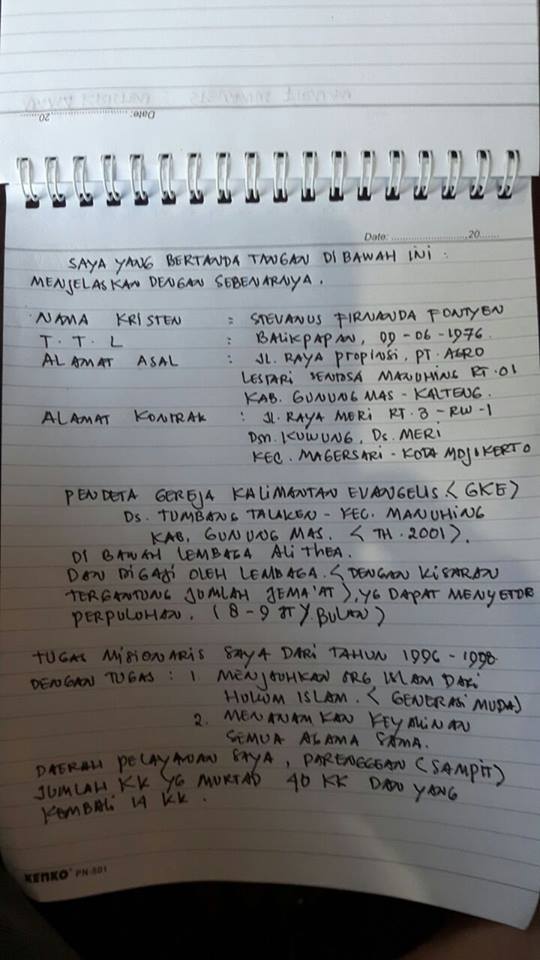 Date: 20
Date: 20
SAYA YANG BERTANDA TANGAN DIBAWAH INI :
MENJELASKAN DENGAN SEBENARNYA.
NAMA KRISTEN : STEVANUS FIRNANDA FONTYEN
T. T. L : BALIKPAPAN, 09-06-1976
ALAMAT ASAL : JL. RAYA PROPINSI, PT. AGRO
LESTARI SENTOSA MANUHING RT.01
KAB. GUNUNG MAS - KALTENG.
ALAMAT KONTRAK : Jl. RAYA MERI RT. 3 - RW-1
Dsn. KUWUNG, Ds. MERI
KEC. MAGERSARI - KOTA MOJOKERTO
PENDETA GEREJA KALIMANTAN EVANGELIS < GKE)
Ds. TUMBANG TALAKEN - KEC. MANUHING
KAB. GUNUNG MAS. < TH. 2001).
DI BAWAH LEMBAGA ALITHEA.
DAN DIGAJI OLEH LEMBAGA. < DENGAN KISARAN
TERGANTUNG JUMLAH JEMA'AT), YG DAPAT MENYETOR
PERPULUHAN. (8-9 JT / BULAN)
TUGAS MISIONARIS SAYA DARI TAHUN 1996 - 1998
DENGAN TUGAS : 1 MENJAUHKAN ORG ISLAM DARI
HUKUM ISLAM. < GENERASI MUDA)
2. MENANAMKAN KEYAKINAN
SEMUA AGAMA SAMA.
DAERAH PELAYANAN SAYA, PARENGGEAN (SAMPIT)
JUMLAH KK YG MURTAD 40 KK DAN YANG
KEMBALI 14 KK.
KENKO PN-501